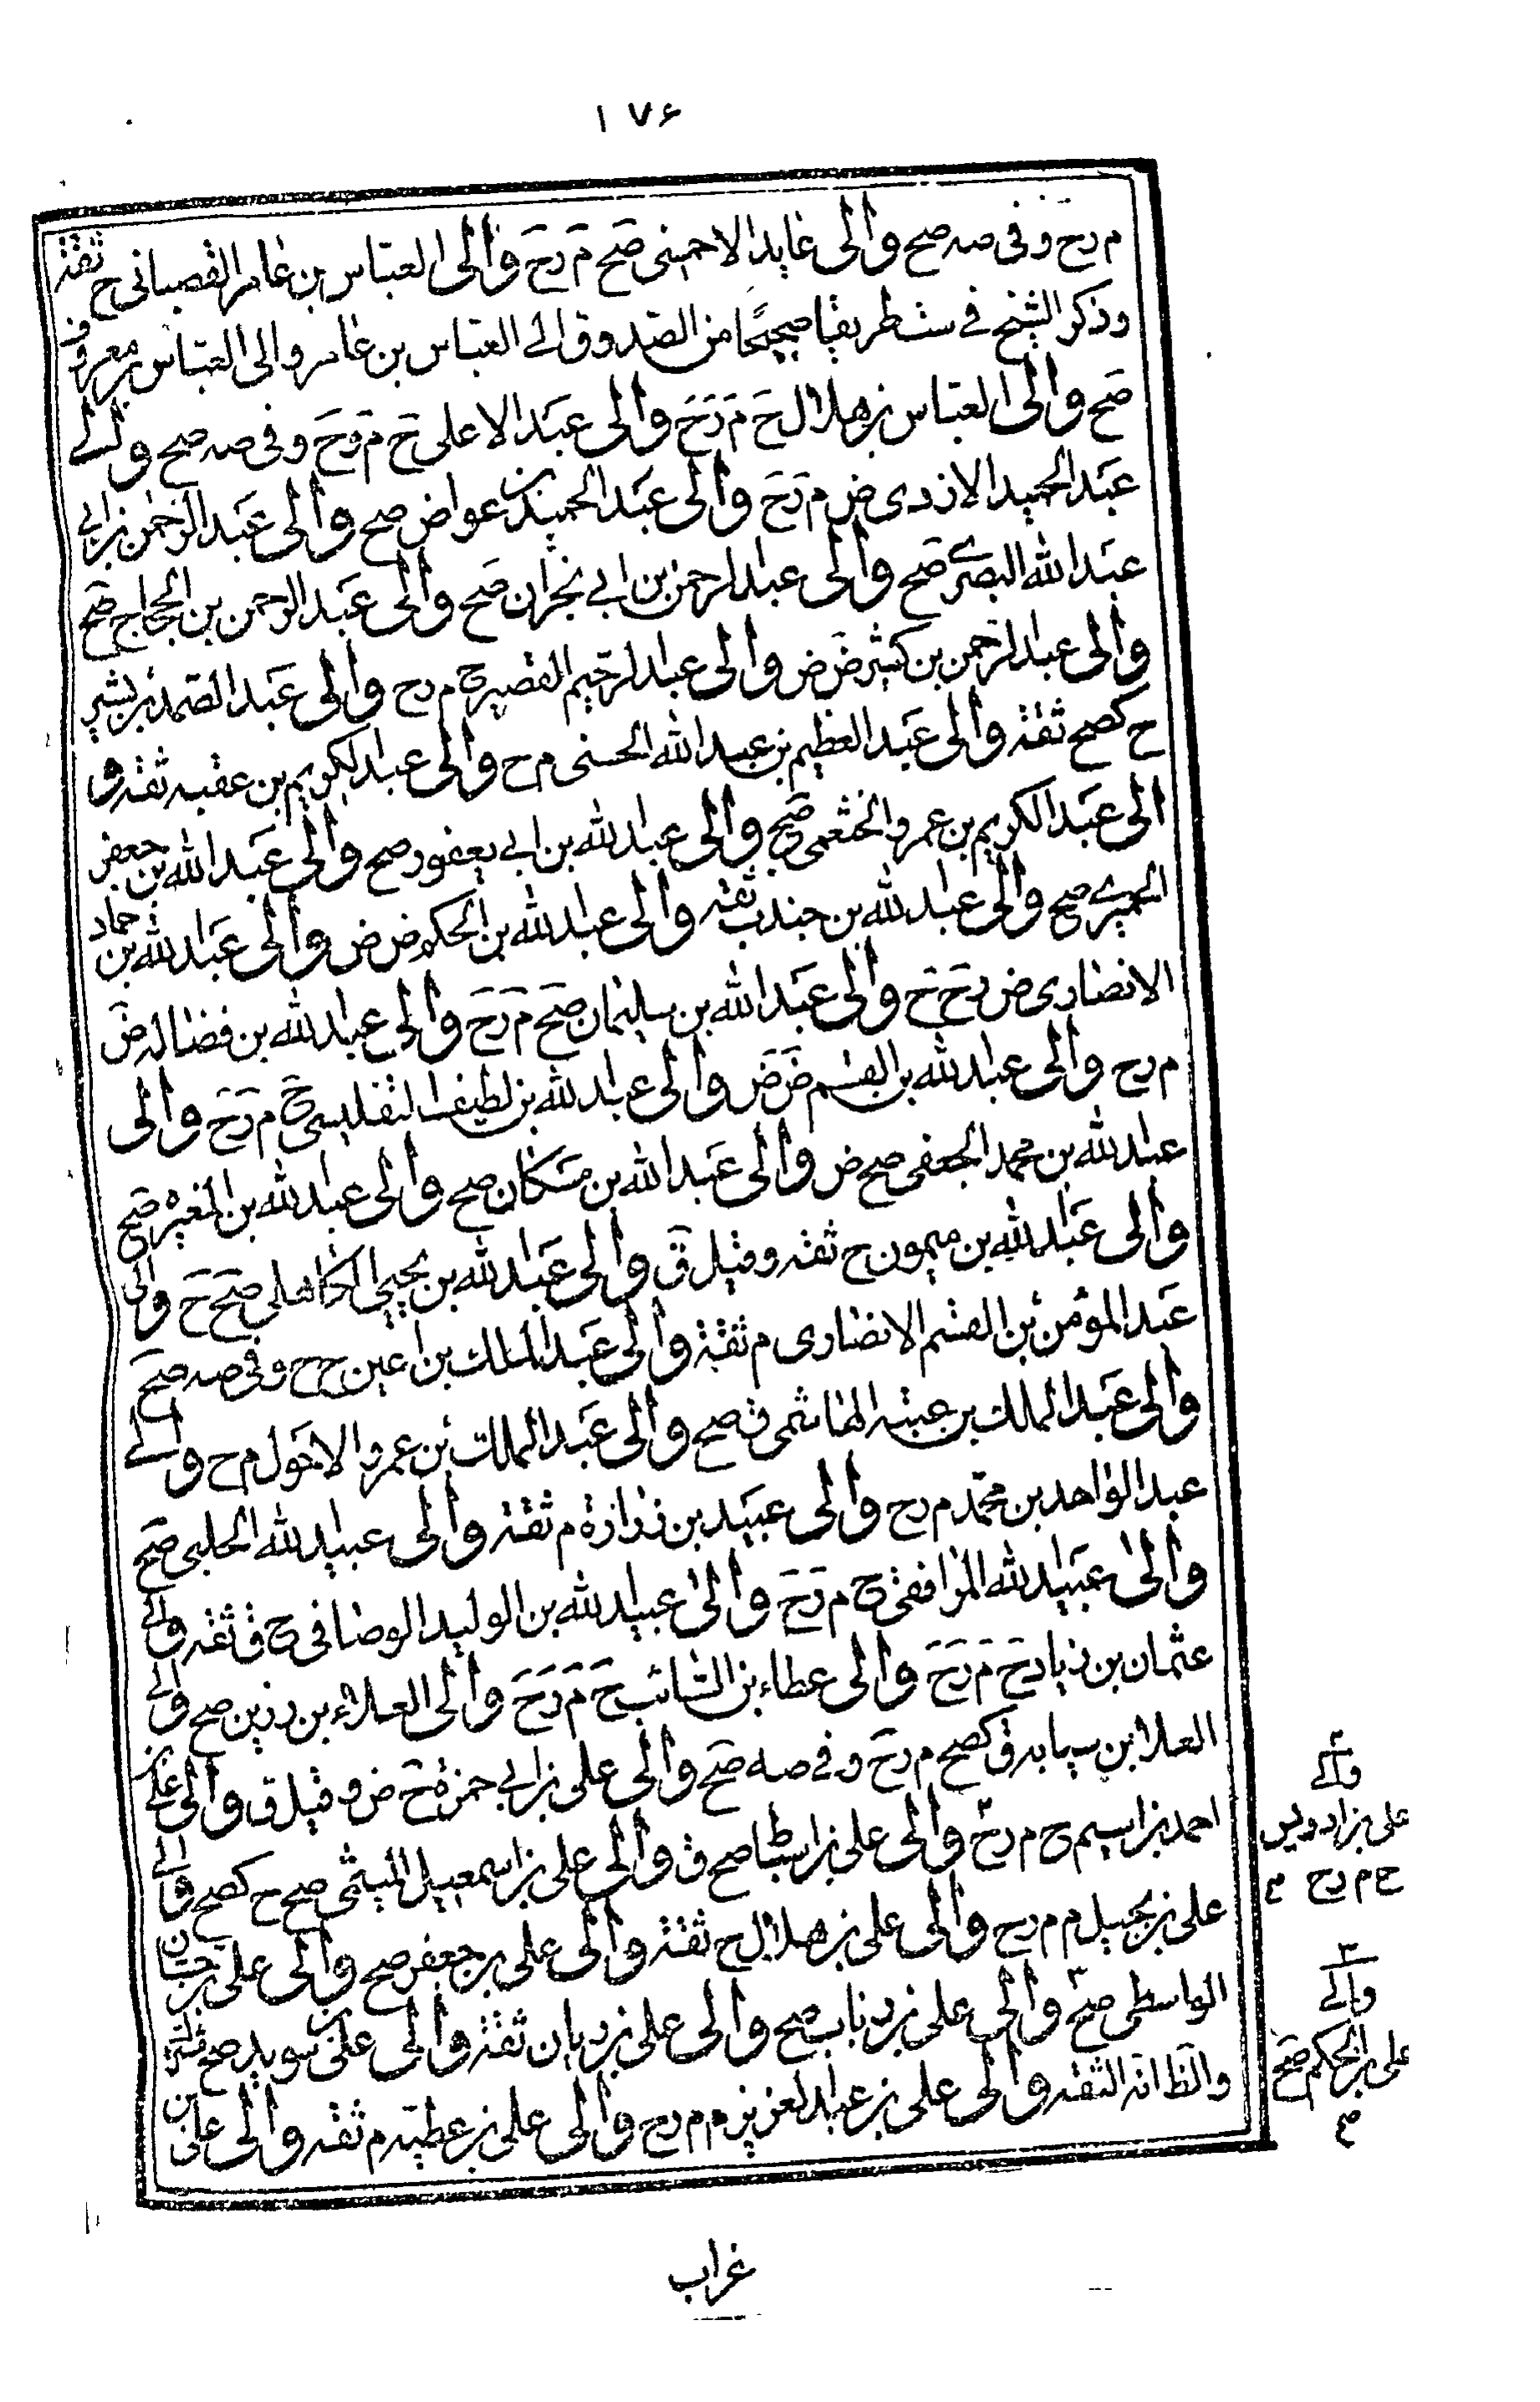 ١٧۶
م رح و فى صه صح والى عايد الاحمسى صح م رح والى العباس بن عامر القصبانى ح ثقة
وذكر الشيخ فى ست طريقا صحيحا من الصدوق الى العباس بن عامر والى العباس بن معروف
صح والى العباس بن هلال ح م رح والى عبد الاعلى ح م رح وفى صه صح والى
عبد الحميد الازدى ض م رح والى عبد الحميد بن عواض صح والى عبد الرحمن بن ابى
عبد الله البصرى صح والى عبد الرحمن بن ابى نجران صح والى عبد الرحمن بن الحجاج صح
والى عبد الرحمن بن كثير ض ض والى عبد الرحيم القصير ح م رح والى عبد الصمد بن بشير
ح كصح ثقة والى عبد العظيم بن عبد الله الحسنى م ح والى عبد الكريم بن عقبه ثقة و
الى عبد الكريم بن عمرو الخثعمى صح والى عبد الله بن ابى يعفور صح والى عبد الله بن جعفر
الحميرى صح والى عبد الله بن جندب ثقة والى عبد الله بن الحكم ض ض والى عبد الله بن حماد
الانصارى ض رح ح والى عبد الله بن سليمان صح م رح والى عبد الله بن فضاله ض
م رح والى عبد الله بن القسم ض ض والى عبد الله بن لطيف التفليسى ح م رح والى
عبد الله بن محمد الجعفى صح ض والى عبد الله بن مسكان صح والى عبد الله بن المغيره صح
والى عبد الله بن ميمون ح ثقة وقيل ق والى عبد الله بن يحيى الكاهلى صح ح والى
عبد المؤمن بن القسم الانصارى م ثقة والى عبد الملك بن اعين ح ح وفى صه صح
والى عبد الملك بن عتبه الهاشمى ق صح والى عبد الملك بن عمرو الاحول م ح والى
عبد الواحد بن محمد م رح والى عبيد بن زرارة م ثقة والى عبيد الله الحلبى صح
والى عبيد الله المرافقى ح م رح والى عبيد الله بن الوليد الوصافى ح ق ثقة والى
عثمان بن زياد ح م رح والى عطاء بن السائب ح م رح والى العلاء بن رزين صح والى
العلا بن سيابه ق كصح م رح وفى صه صح والى على بن ابى حمزة ح ض وقيل ق والى على بن
احمد بن اسيم ح م رح والى على بن اسباط صح ق والى على بن اسمعيل الميثمى صح ح كصح والى
على بن بجيل م م رح والى على بن هلال ح ثقة والى على بن جعفر صح والى على بن حسان
الواسطى صح والى على بن رئاب صح والى على بن ريان ثقة والى على بن سويد صح ثقة
والظ انه الثقة والى على بن عبد العزيز م م رح والى على بن عطيه م ثقة والى على بن
والى
على بن ادريس
ح م رح م
والى
على بن الحكم صح
م
غراب